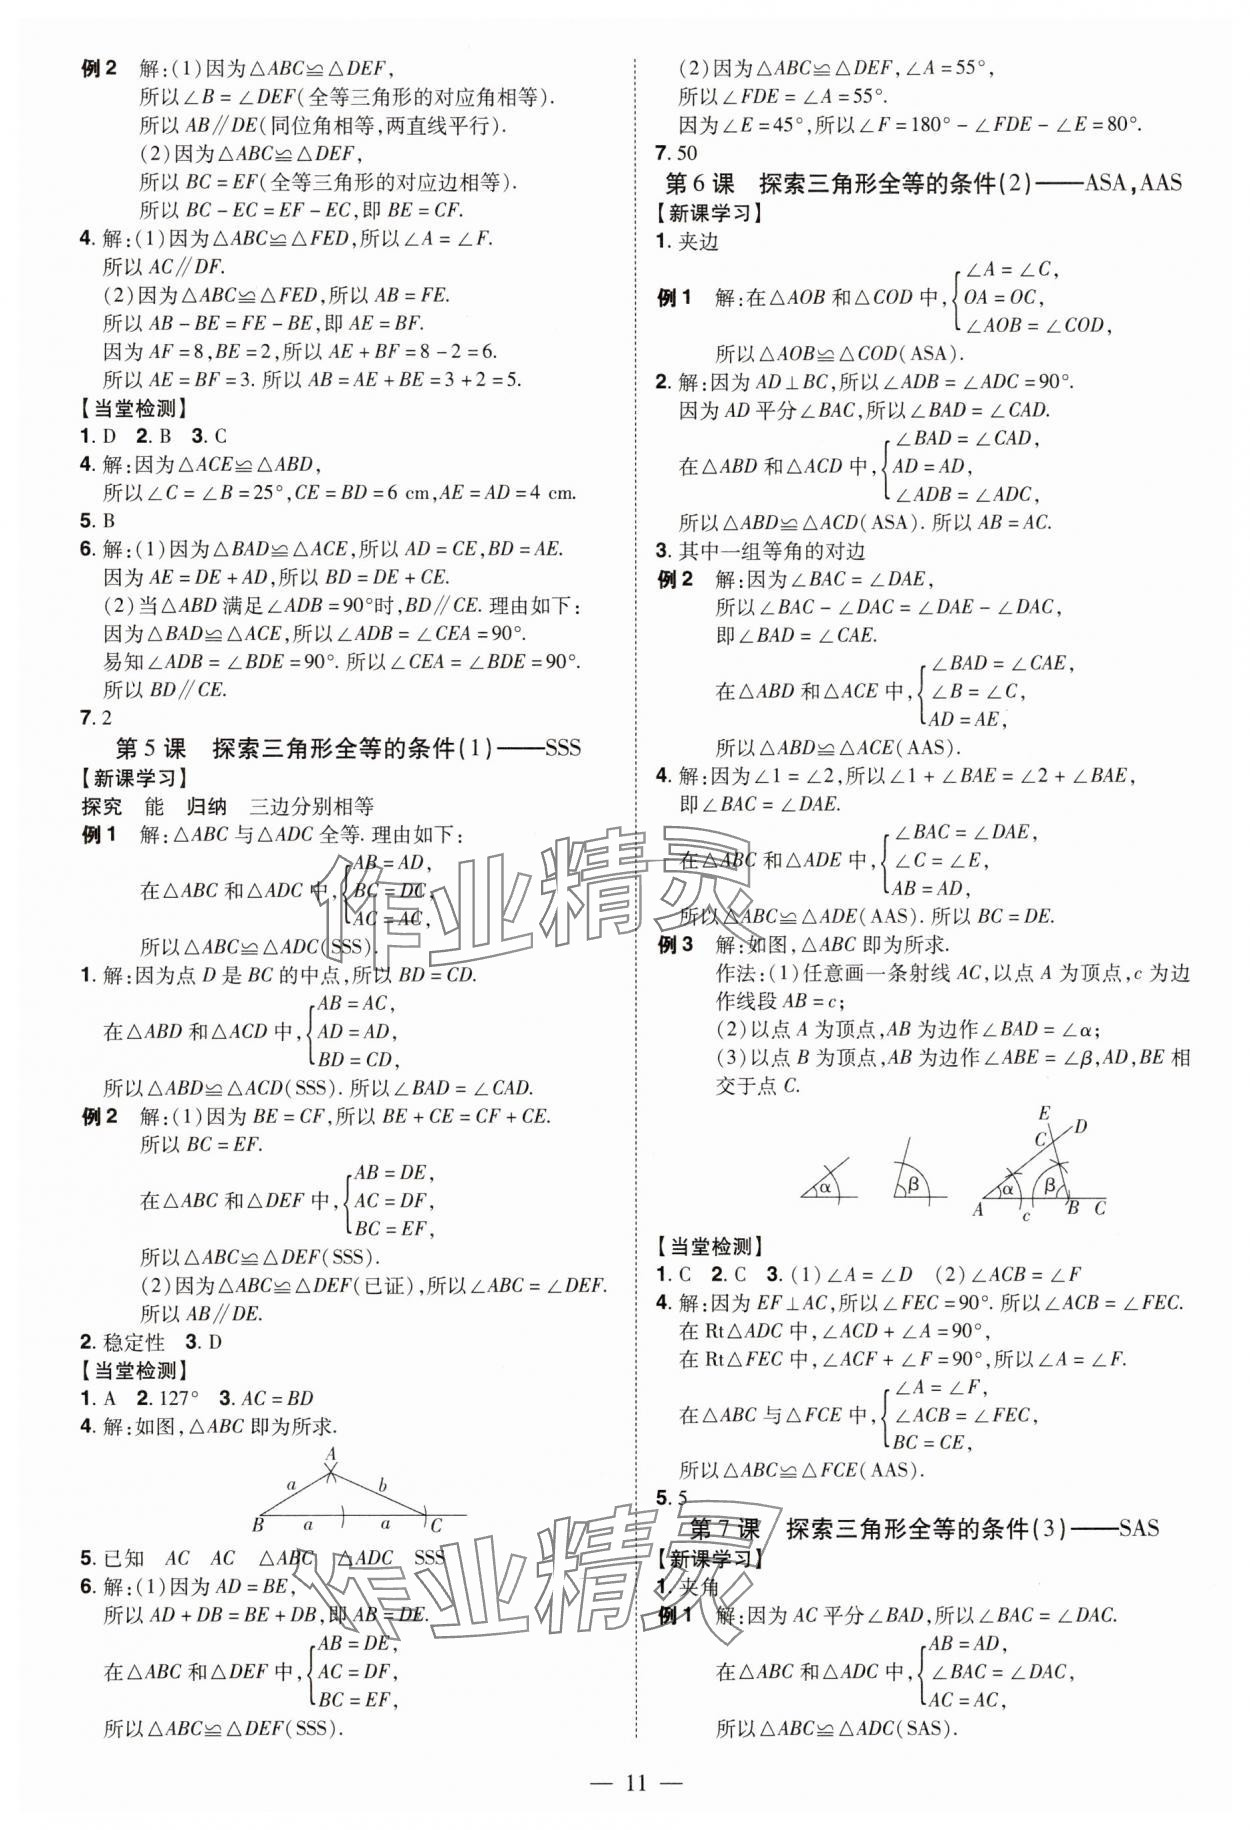 例2 解:(1)因为△ABC≌△DEF,
所以∠B=∠DEF(全等三角形的对应角相等).
所以AB∥DE(同位角相等,两直线平行).
(2)因为△ABC≌△DEF,
所以BC=EF(全等三角形的对应边相等).
所以BC-EC=EF-EC,即BE=CF.
4. 解:(1)因为△ABC≌△FED,所以∠A=∠F.
所以AC∥DF.
(2)因为△ABC≌△FED,所以AB=FE.
所以AB-BE=FE-BE,即AE=BF.
因为AF=8,BE=2,所以AE+BF=8-2=6.
所以AE=BF=3. 所以AB=AE+BE=3+2=5.
【当堂检测】
1. D 2. B 3. C
4. 解:因为△ACE≌△ABD,
所以∠C=∠B=25°,CE=BD=6 cm,AE=AD=4 cm.
5. B
6. 解:(1)因为△BAD≌△ACE,所以AD=CE,BD=AE.
因为AE=DE+AD,所以BD=DE+CE.
(2)当△ABD满足∠ADB=90°时,BD∥CE. 理由如下:
因为△BAD≌△ACE,所以∠ADB=∠CEA=90°.
易知∠ADB=∠BDE=90°. 所以∠CEA=∠BDE=90°.
所以BD∥CE.
7. 2
第5课 探索三角形全等的条件(1)——SSS
【新课学习】
探究 能 归纳 三边分别相等
例1 解:△ABC与△ADC全等. 理由如下:
AB=AD,
在△ABC和△ADC中,{BC=DC,
AC=AC,
所以△ABC≌△ADC(SSS).
1. 解:因为点D是BC的中点,所以BD=CD.
AB=AC,
在△ABD和△ACD中,{AD=AD,
BD=CD,
所以△ABD≌△ACD(SSS). 所以∠BAD=∠CAD.
例2 解:(1)因为BE=CF,所以BE+CE=CF+CE.
所以BC=EF.
AB=DE,
在△ABC和△DEF中,{AC=DF,
BC=EF,
所以△ABC≌△DEF(SSS).
(2)因为△ABC≌△DEF(已证),所以∠ABC=∠DEF.
所以AB∥DE.
2. 稳定性 3. D
【当堂检测】
1. A 2. 127° 3. AC=BD
4. 解:如图,△ABC即为所求.
A
a b
B a a C
5. 已知 AC AC △ABC △ADC SSS
6. 解:(1)因为AD=BE,
所以AD+DB=BE+DB,即AB=DE.
AB=DE,
在△ABC和△DEF中,{AC=DF,
BC=EF,
所以△ABC≌△DEF(SSS).
(2)因为△ABC≌△DEF,∠A=55°,
所以∠FDE=∠A=55°.
因为∠E=45°,所以∠F=180°-∠FDE-∠E=80°.
7. 50
第6课 探索三角形全等的条件(2)——ASA,AAS
【新课学习】
1. 夹边
∠A=∠C,
例1 解:在△AOB和△COD中,{OA=OC,
∠AOB=∠COD,
所以△AOB≌△COD(ASA).
2. 解:因为AD⊥BC,所以∠ADB=∠ADC=90°.
因为AD平分∠BAC,所以∠BAD=∠CAD.
∠BAD=∠CAD,
在△ABD和△ACD中,{AD=AD,
∠ADB=∠ADC,
所以△ABD≌△ACD(ASA). 所以AB=AC.
3. 其中一组等角的对边
例2 解:因为∠BAC=∠DAE,
所以∠BAC-∠DAC=∠DAE-∠DAC,
即∠BAD=∠CAE.
∠BAD=∠CAE,
在△ABD和△ACE中,{∠B=∠C,
AD=AE,
所以△ABD≌△ACE(AAS).
4. 解:因为∠1=∠2,所以∠1+∠BAE=∠2+∠BAE,
即∠BAC=∠DAE.
∠BAC=∠DAE,
在△ABC和△ADE中,{∠C=∠E,
AB=AD,
所以△ABC≌△ADE(AAS). 所以BC=DE.
例3 解:如图,△ABC即为所求.
作法:(1)任意画一条射线AC,以点A为顶点,c为边
作线段AB=c;
(2)以点A为顶点,AB为边作∠BAD=∠α;
(3)以点B为顶点,AB为边作∠ABE=∠β,AD,BE相
交于点C.
E
C D
α β α β
A c B C
【当堂检测】
1. C 2. C 3. (1)∠A=∠D (2)∠ACB=∠F
4. 解:因为EF⊥AC,所以∠FEC=90°. 所以∠ACB=∠FEC.
在Rt△ADC中,∠ACD+∠A=90°,
在Rt△FEC中,∠ACF+∠F=90°,所以∠A=∠F.
∠A=∠F,
在△ABC与△FCE中,{∠ACB=∠FEC,
BC=CE,
所以△ABC≌△FCE(AAS).
5. 5
第7课 探索三角形全等的条件(3)——SAS
【新课学习】
1. 夹角
例1 解:因为AC平分∠BAD,所以∠BAC=∠DAC.
AB=AD,
在△ABC和△ADC中,{∠BAC=∠DAC,
AC=AC,
所以△ABC≌△ADC(SAS).
作业精灵
作业精灵
— 11 —